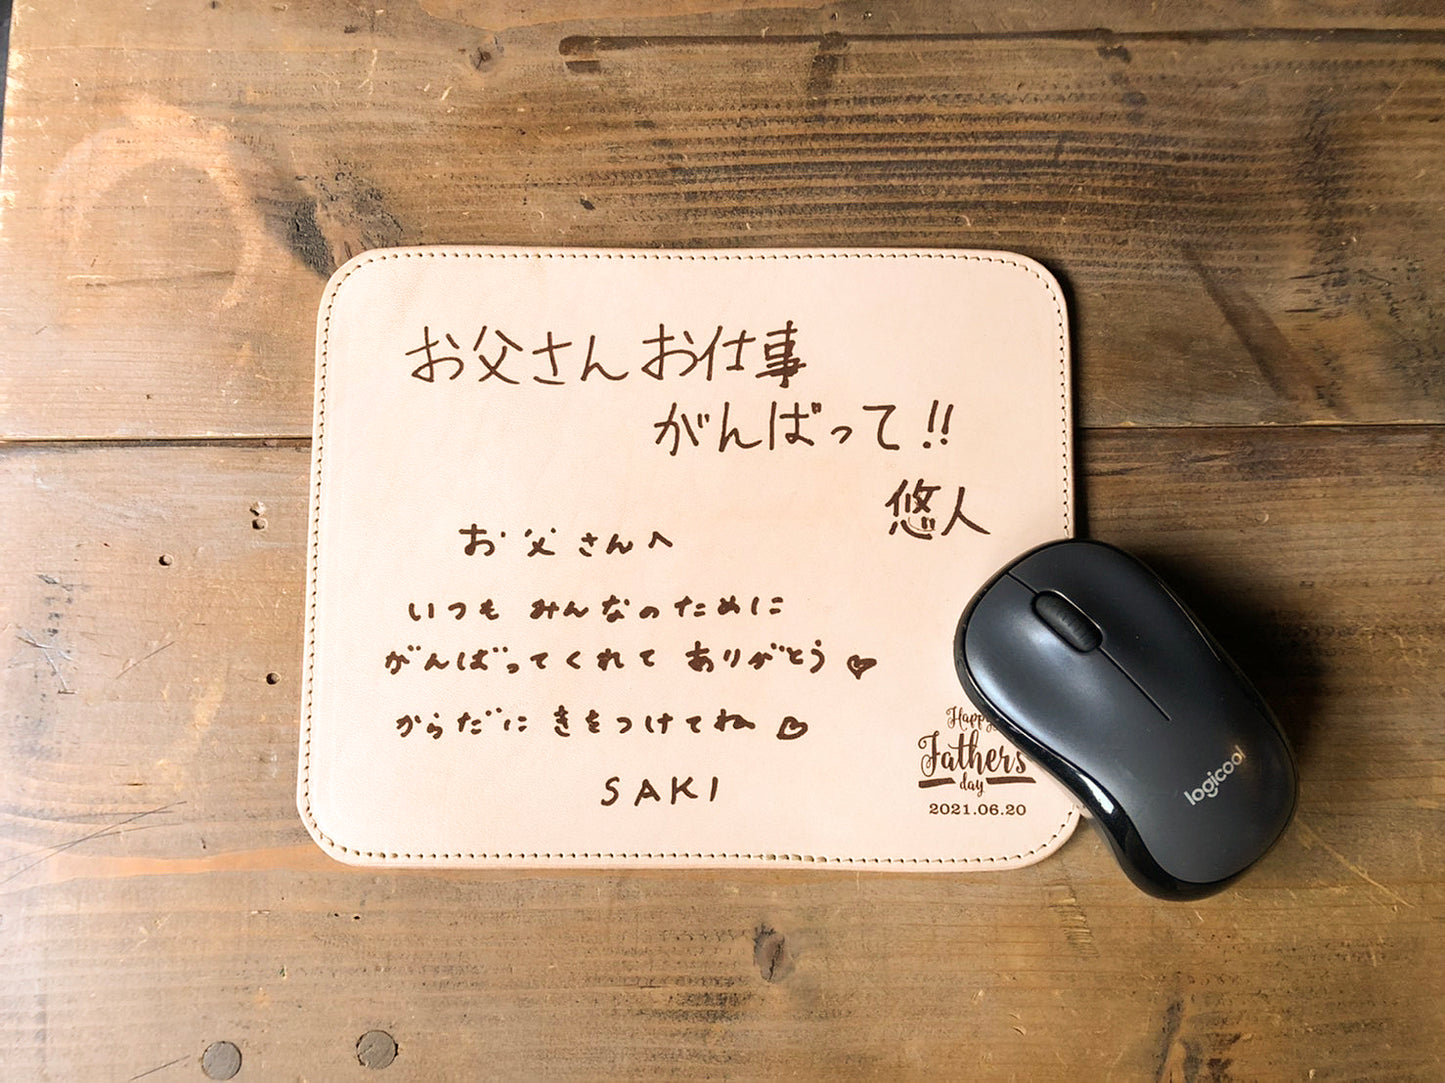 お父さんお仕事
がんばって!!
悠人
お父さんへ
いつも みんなのために
がんばってくれて ありがとう♡
からだに きをつけてね♡
SAKI
Happy
Father's
day
2021.06.20
logicool